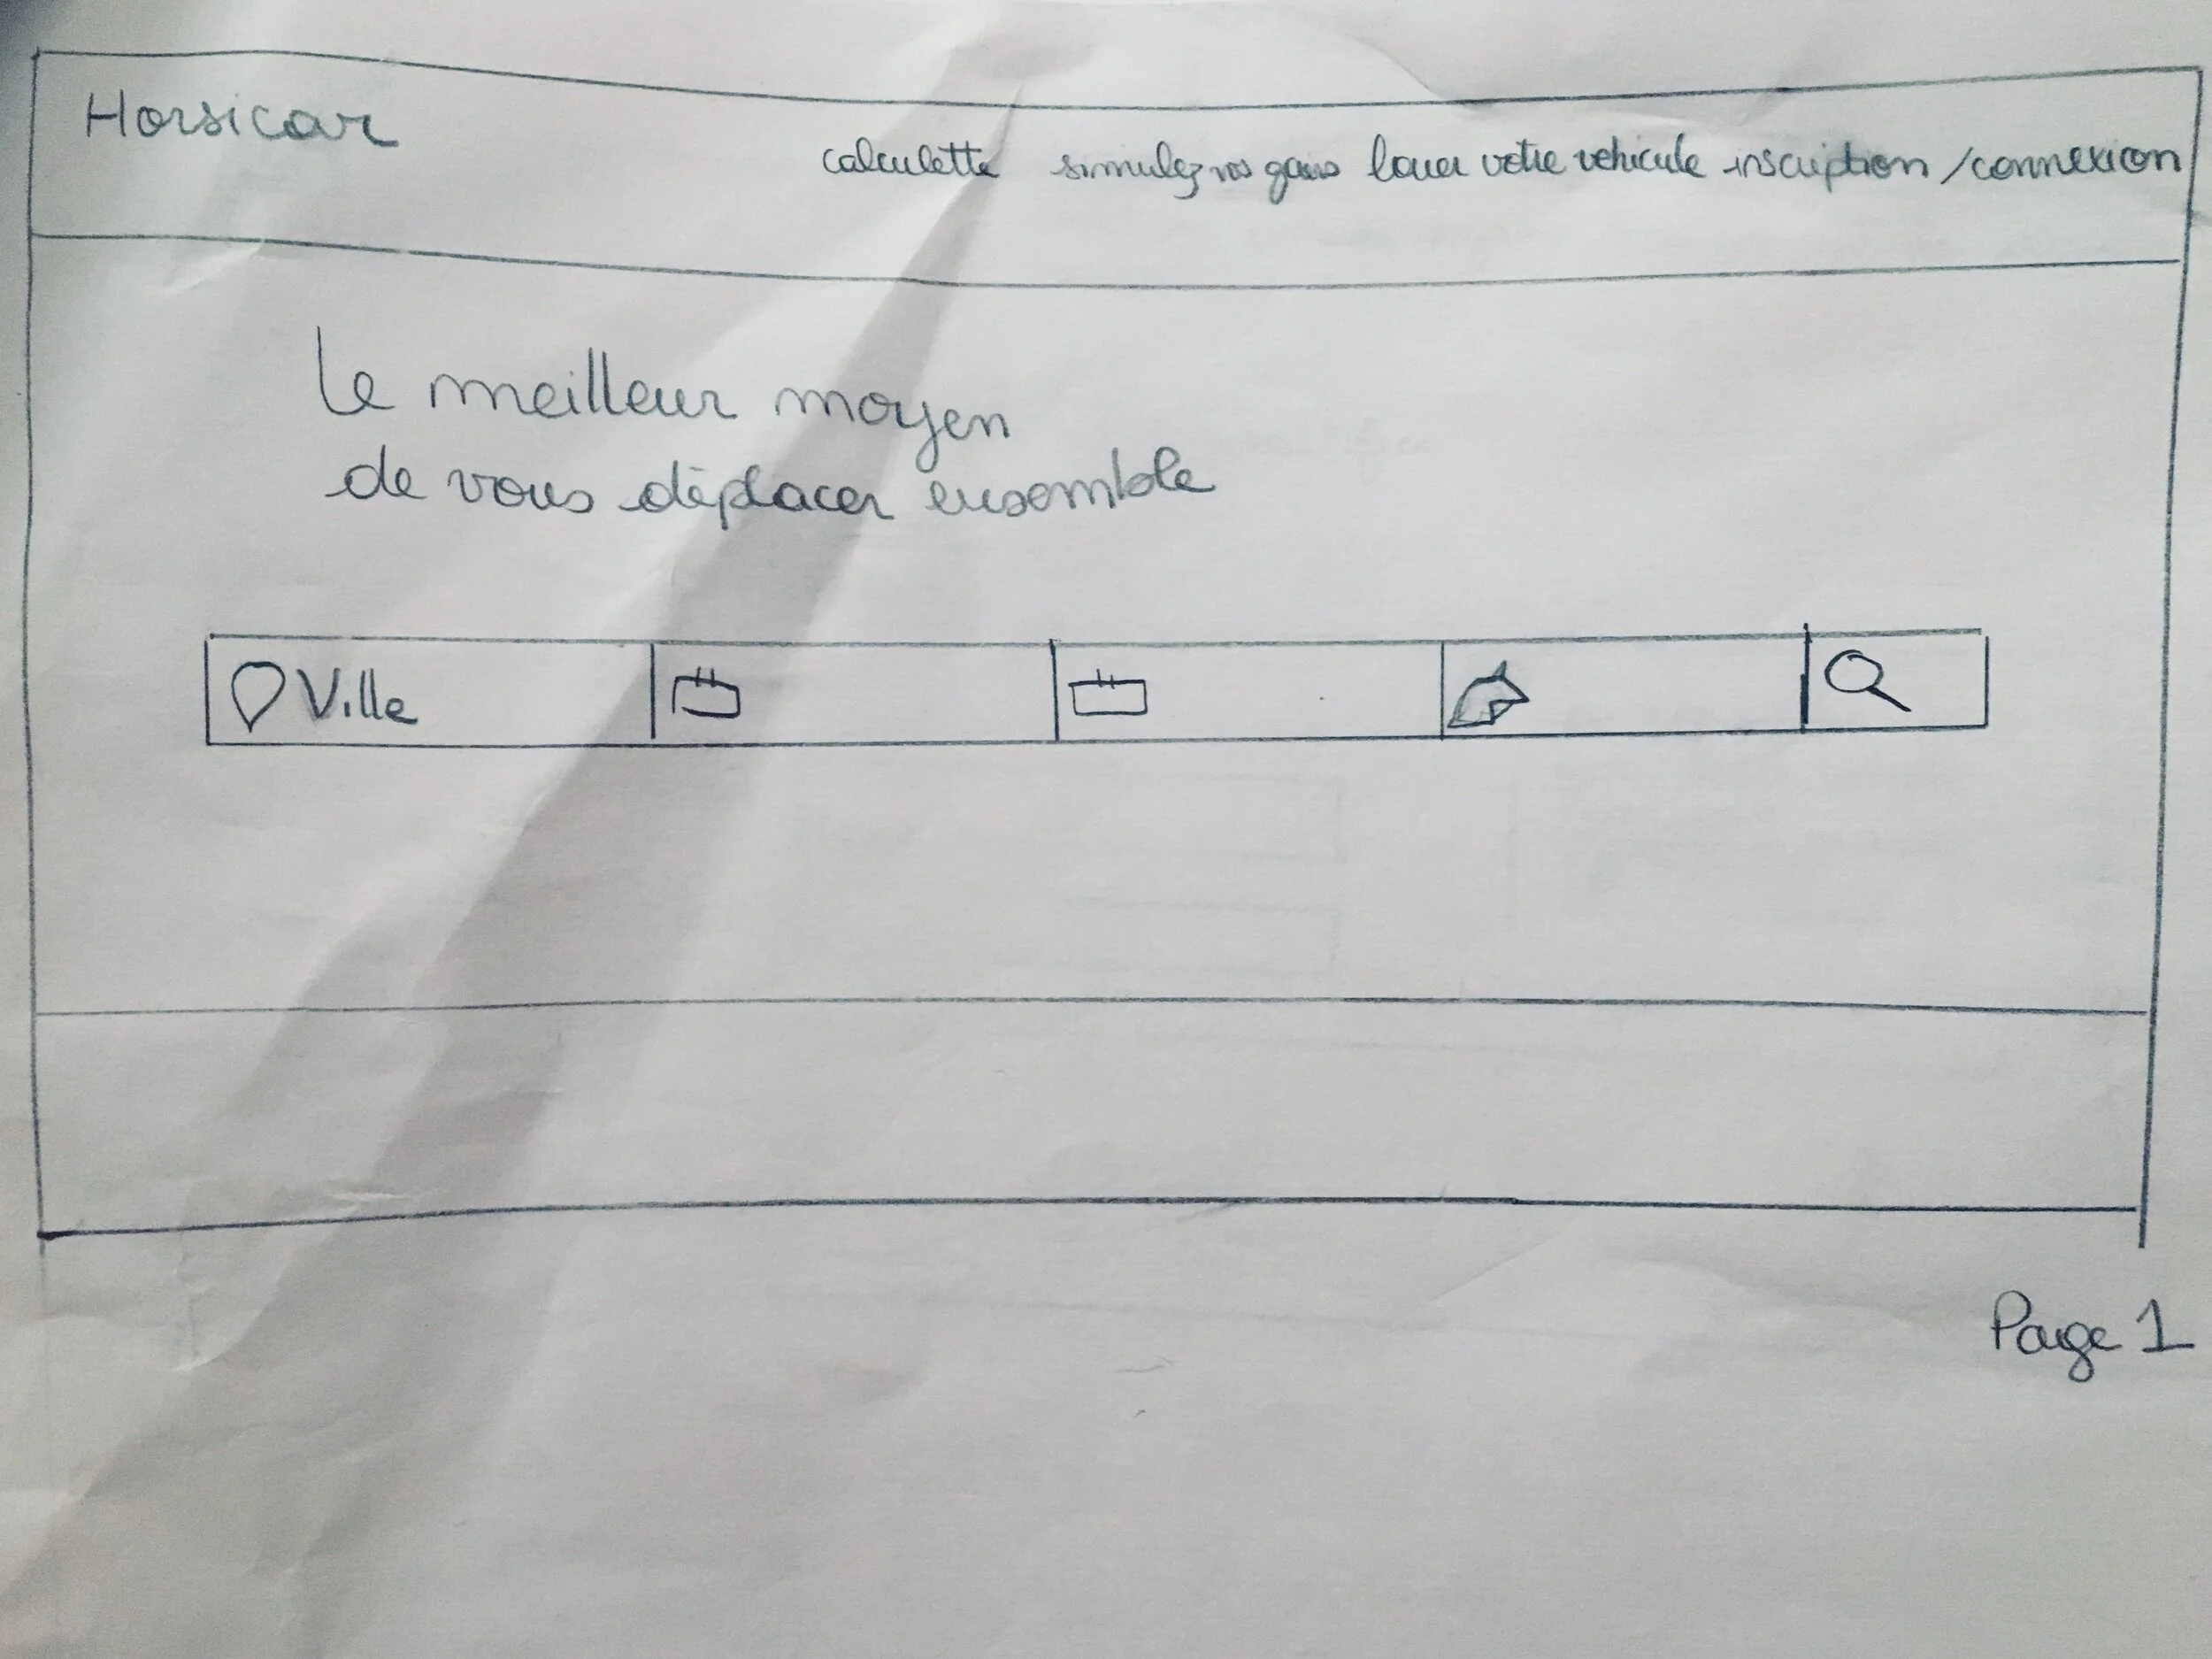 Horsicar
calculette simulez vos gains louer votre vehicule inscription /connexion
Le meilleur moyen
de vous déplacer ensemble
Ville
Page 1